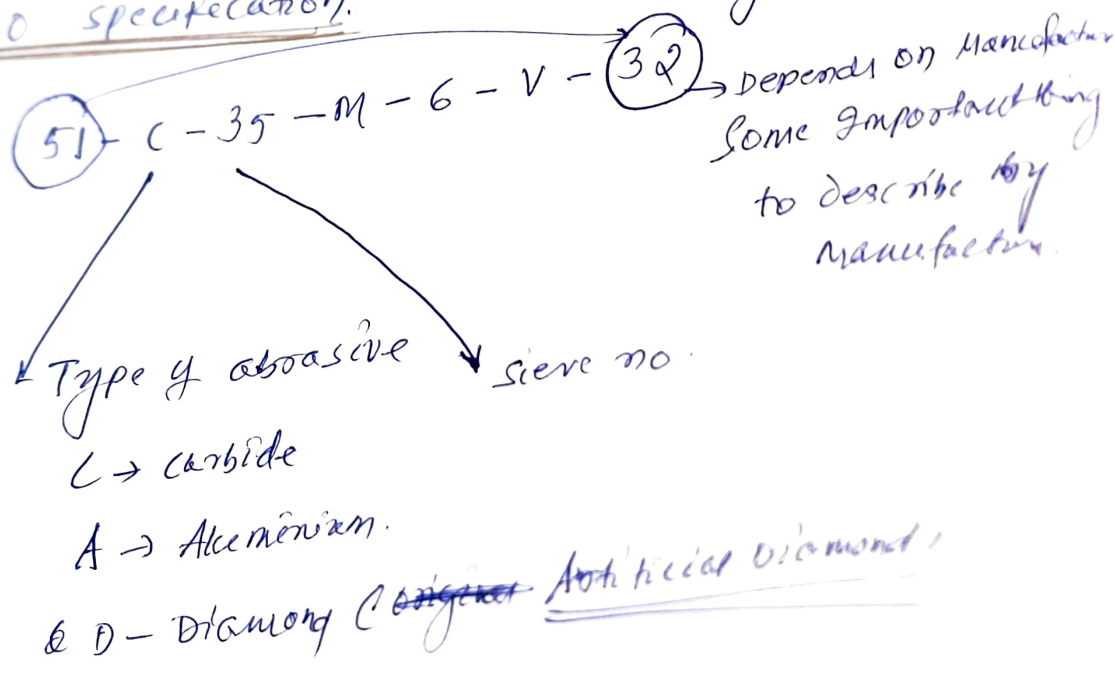 specification.
51 - C - 35 - M - 6 - V - 32
Depends on Manufactur
Some Important thing
to describe by
Manufacture.
Type of abrasive
sieve no.
C → Carbide
A → Alumenium.
D - Diamong ( Artificial Diamond,